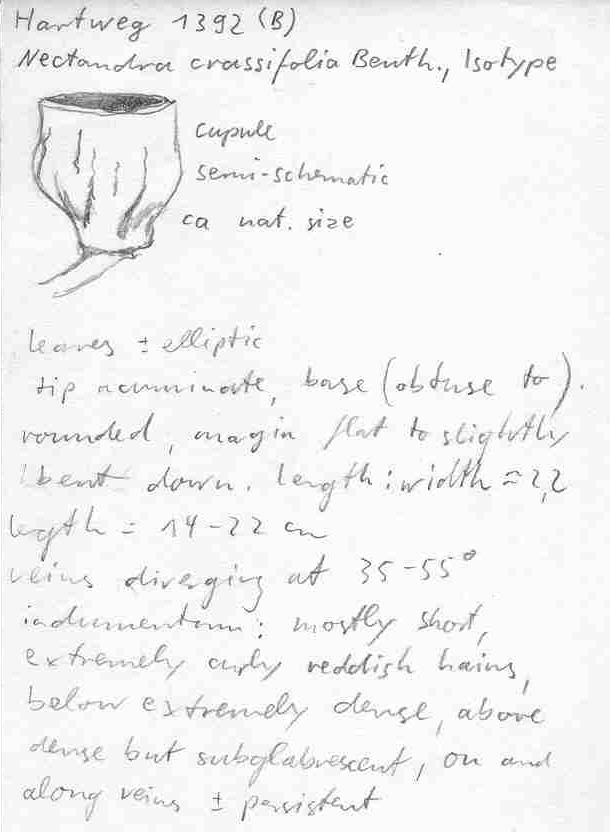 Hartweg 1392 (B)
Nectandra crassifolia Benth., Isotype
cupule
semi-schematic
ca nat. size
leaves ± elliptic
tip acuminate, base (obtuse to).
rounded, margin flat to slightly
bent down. length:width ≈ 2,2
legth = 14-22 cm
veins diverging at 35-55°
indumentum: mostly short,
extremely curly reddish hairs,
below extremely dense, above
dense but subglabrescent, on and
along veins ± persistent